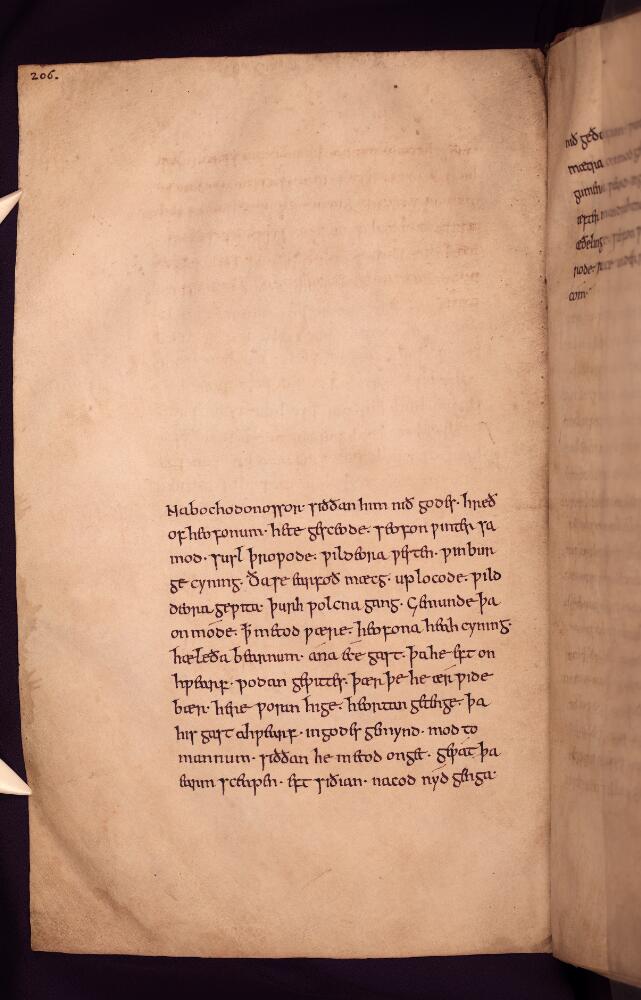 206.
Nabochodonossor. siððan him nið godes. hreð
of heofonum. hete gesceode. seofon ƿinter sa
mod. susl þroƿode. ƿildeora ƿesten. ƿin bur
ge cyning. Ða se earfoð mæcg. up locode. ƿild
deora geƿita. þurh ƿolcna gang. Gemunde þa
on mode. ꝥ metod ƿære. heofona heah cyning.
hæleða bearnum. ana éce gast. þa he eft on
hƿearf. ƿodan geƿittes. þær þe he ær ƿide
bær. here ƿosan hige. heortan getenge. þa
his gast ahƿearf. in godes gemynd. mod to
mannum. siððan he metod onget. geƿat þa
earm sceapen. eft siðian. nacod nyd genga